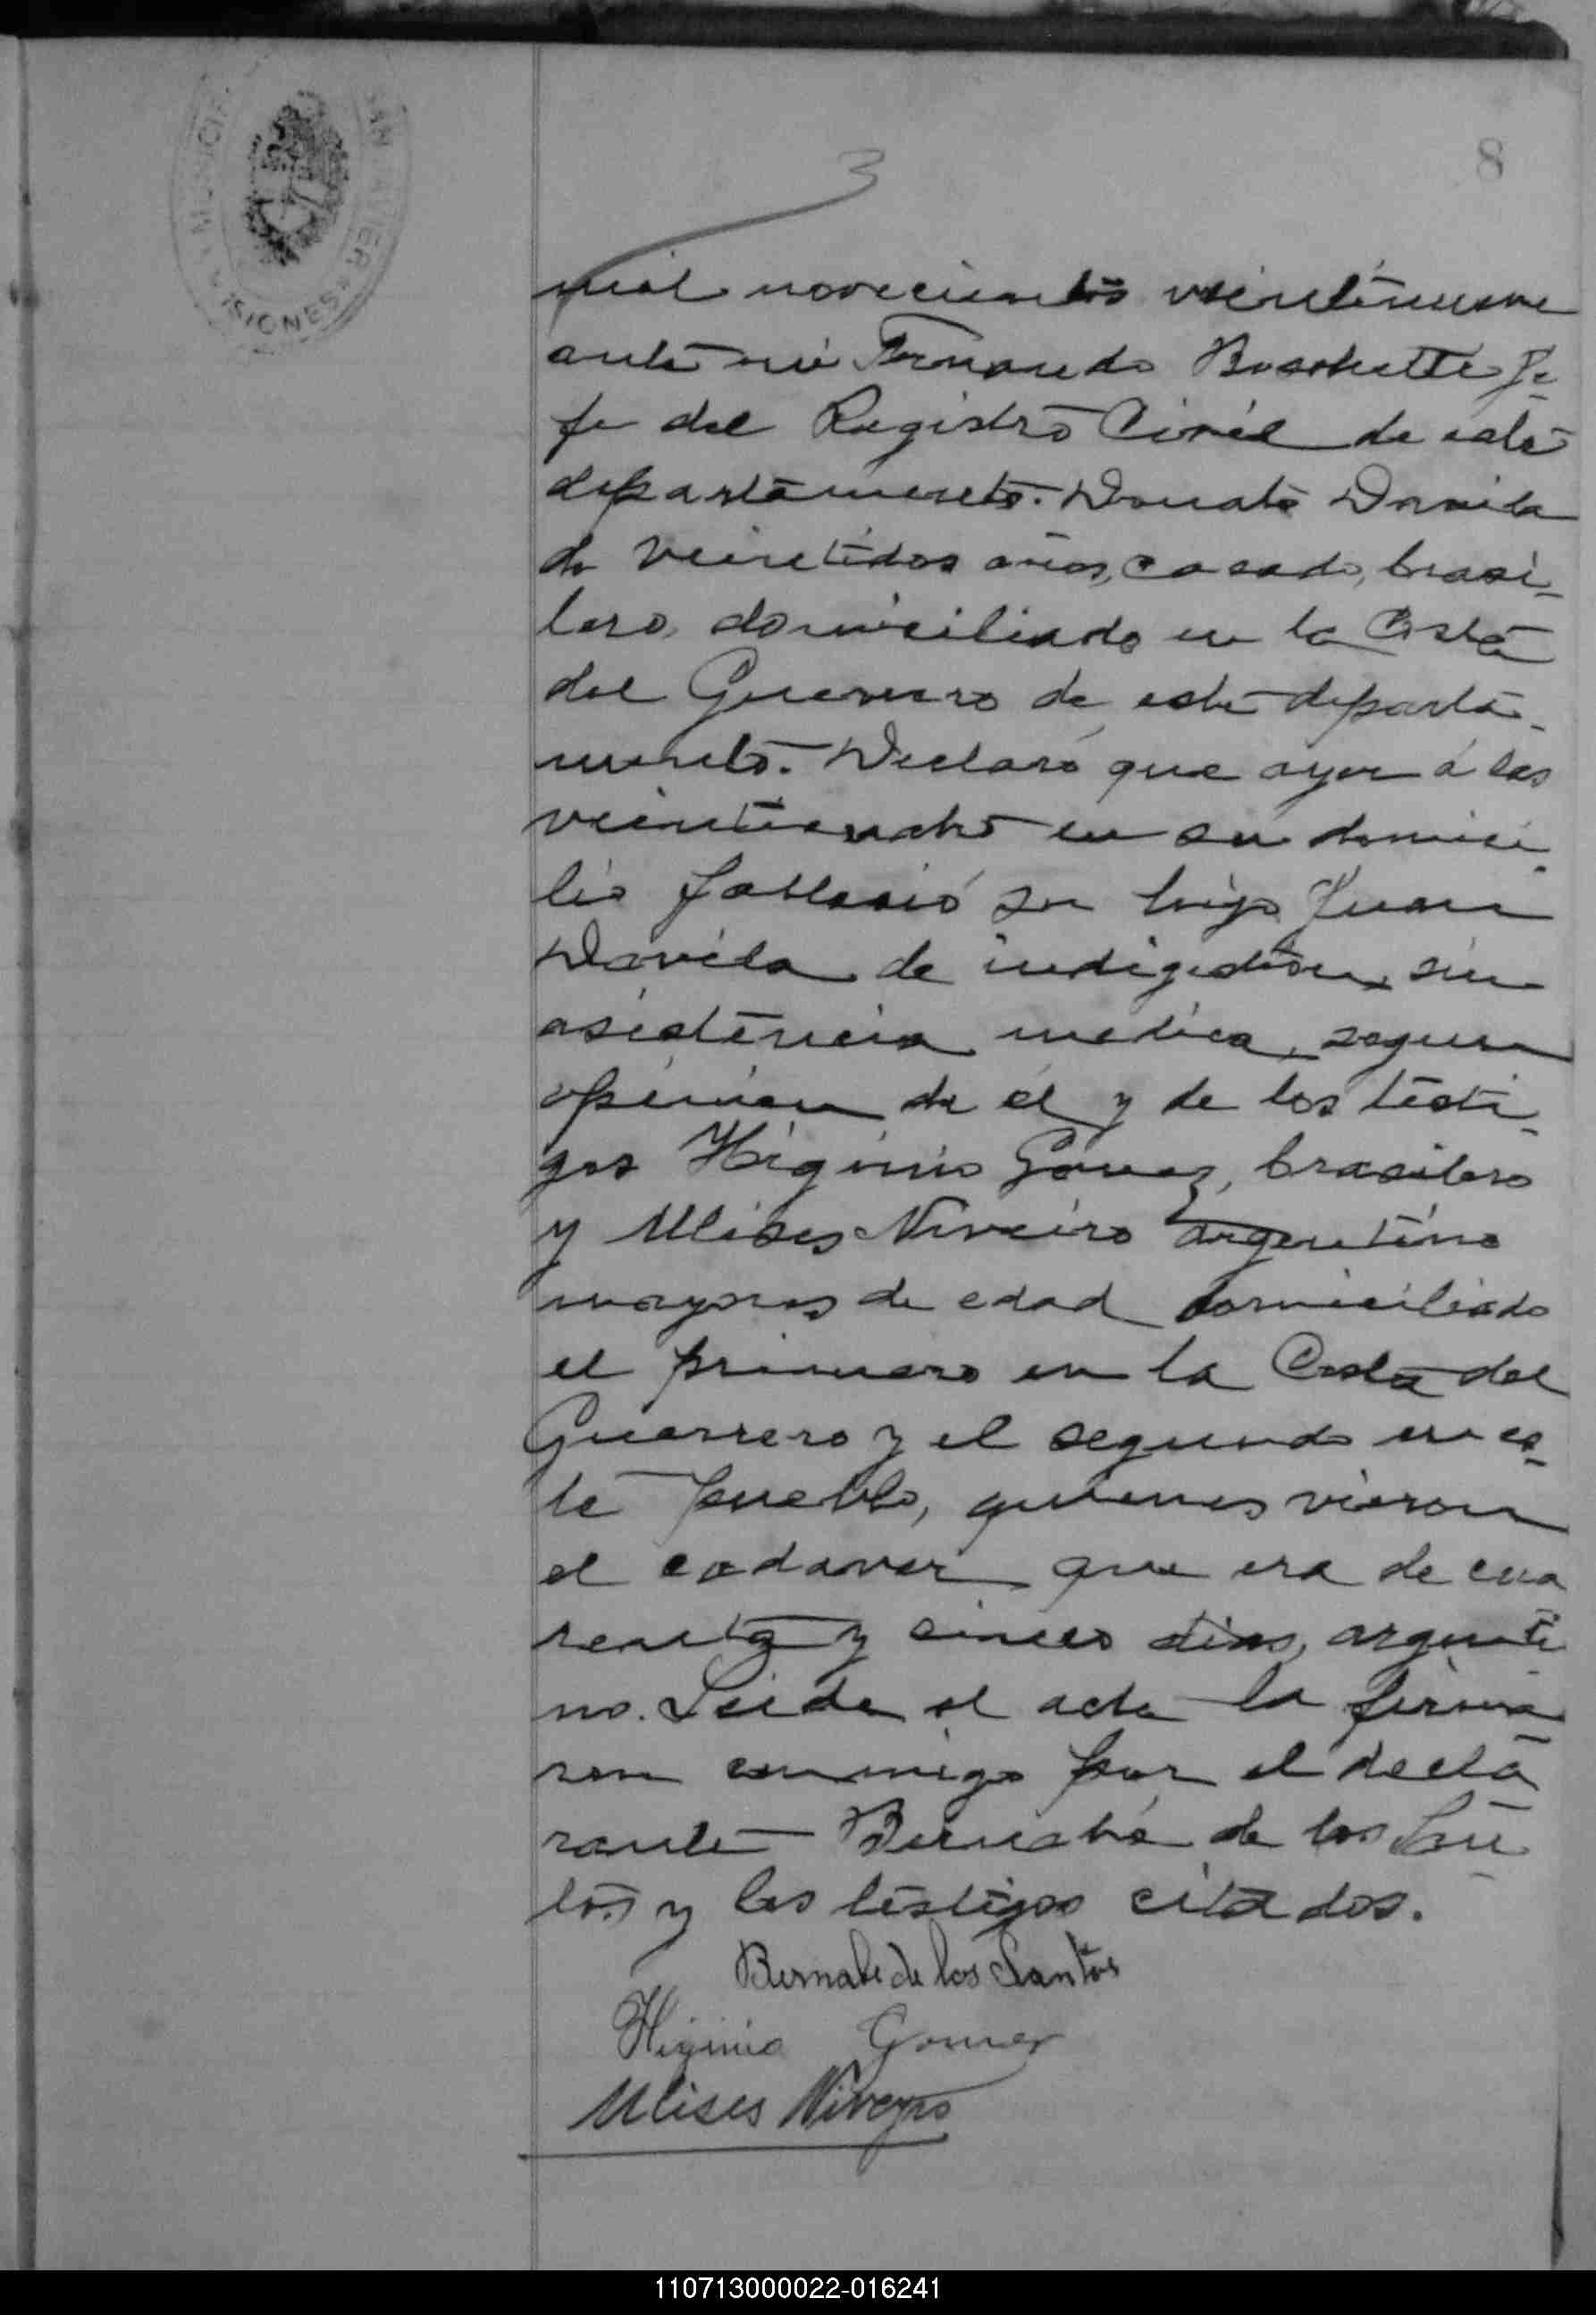 8
3
MISIONES
mil novecientos veintinueve
ante mi Fernando Boschetti Je-
fe del Registro Civil de este
departamento. Donato Davila
de veintidos años, casado, brasi-
lero, domiciliado en la Costa
del Guerrero de este departa-
mento. Declaró que ayer á las
veinticuatro en su domici-
lio falleció su hijo Juan
Davila de indigestion, sin
asistencia medica, segun
opinion de él y de los testi-
gos Higinio Gomez, brasilero
y Ulises Niveiro argentino
mayores de edad domiciliado
el primero en la Costa del
Guerrero y el segundo en es-
te pueblo, quienes vieron
el cadaver que era de cua
renta y cinco dias, argenti-
no. Leida el acta la firma
ron conmigo por el decla
rante Bernabé de los San-
tos y los testigos citados.
Bernabe de los Santos
Higinio Gomez
Ulises Niveyro
110713000022-016241